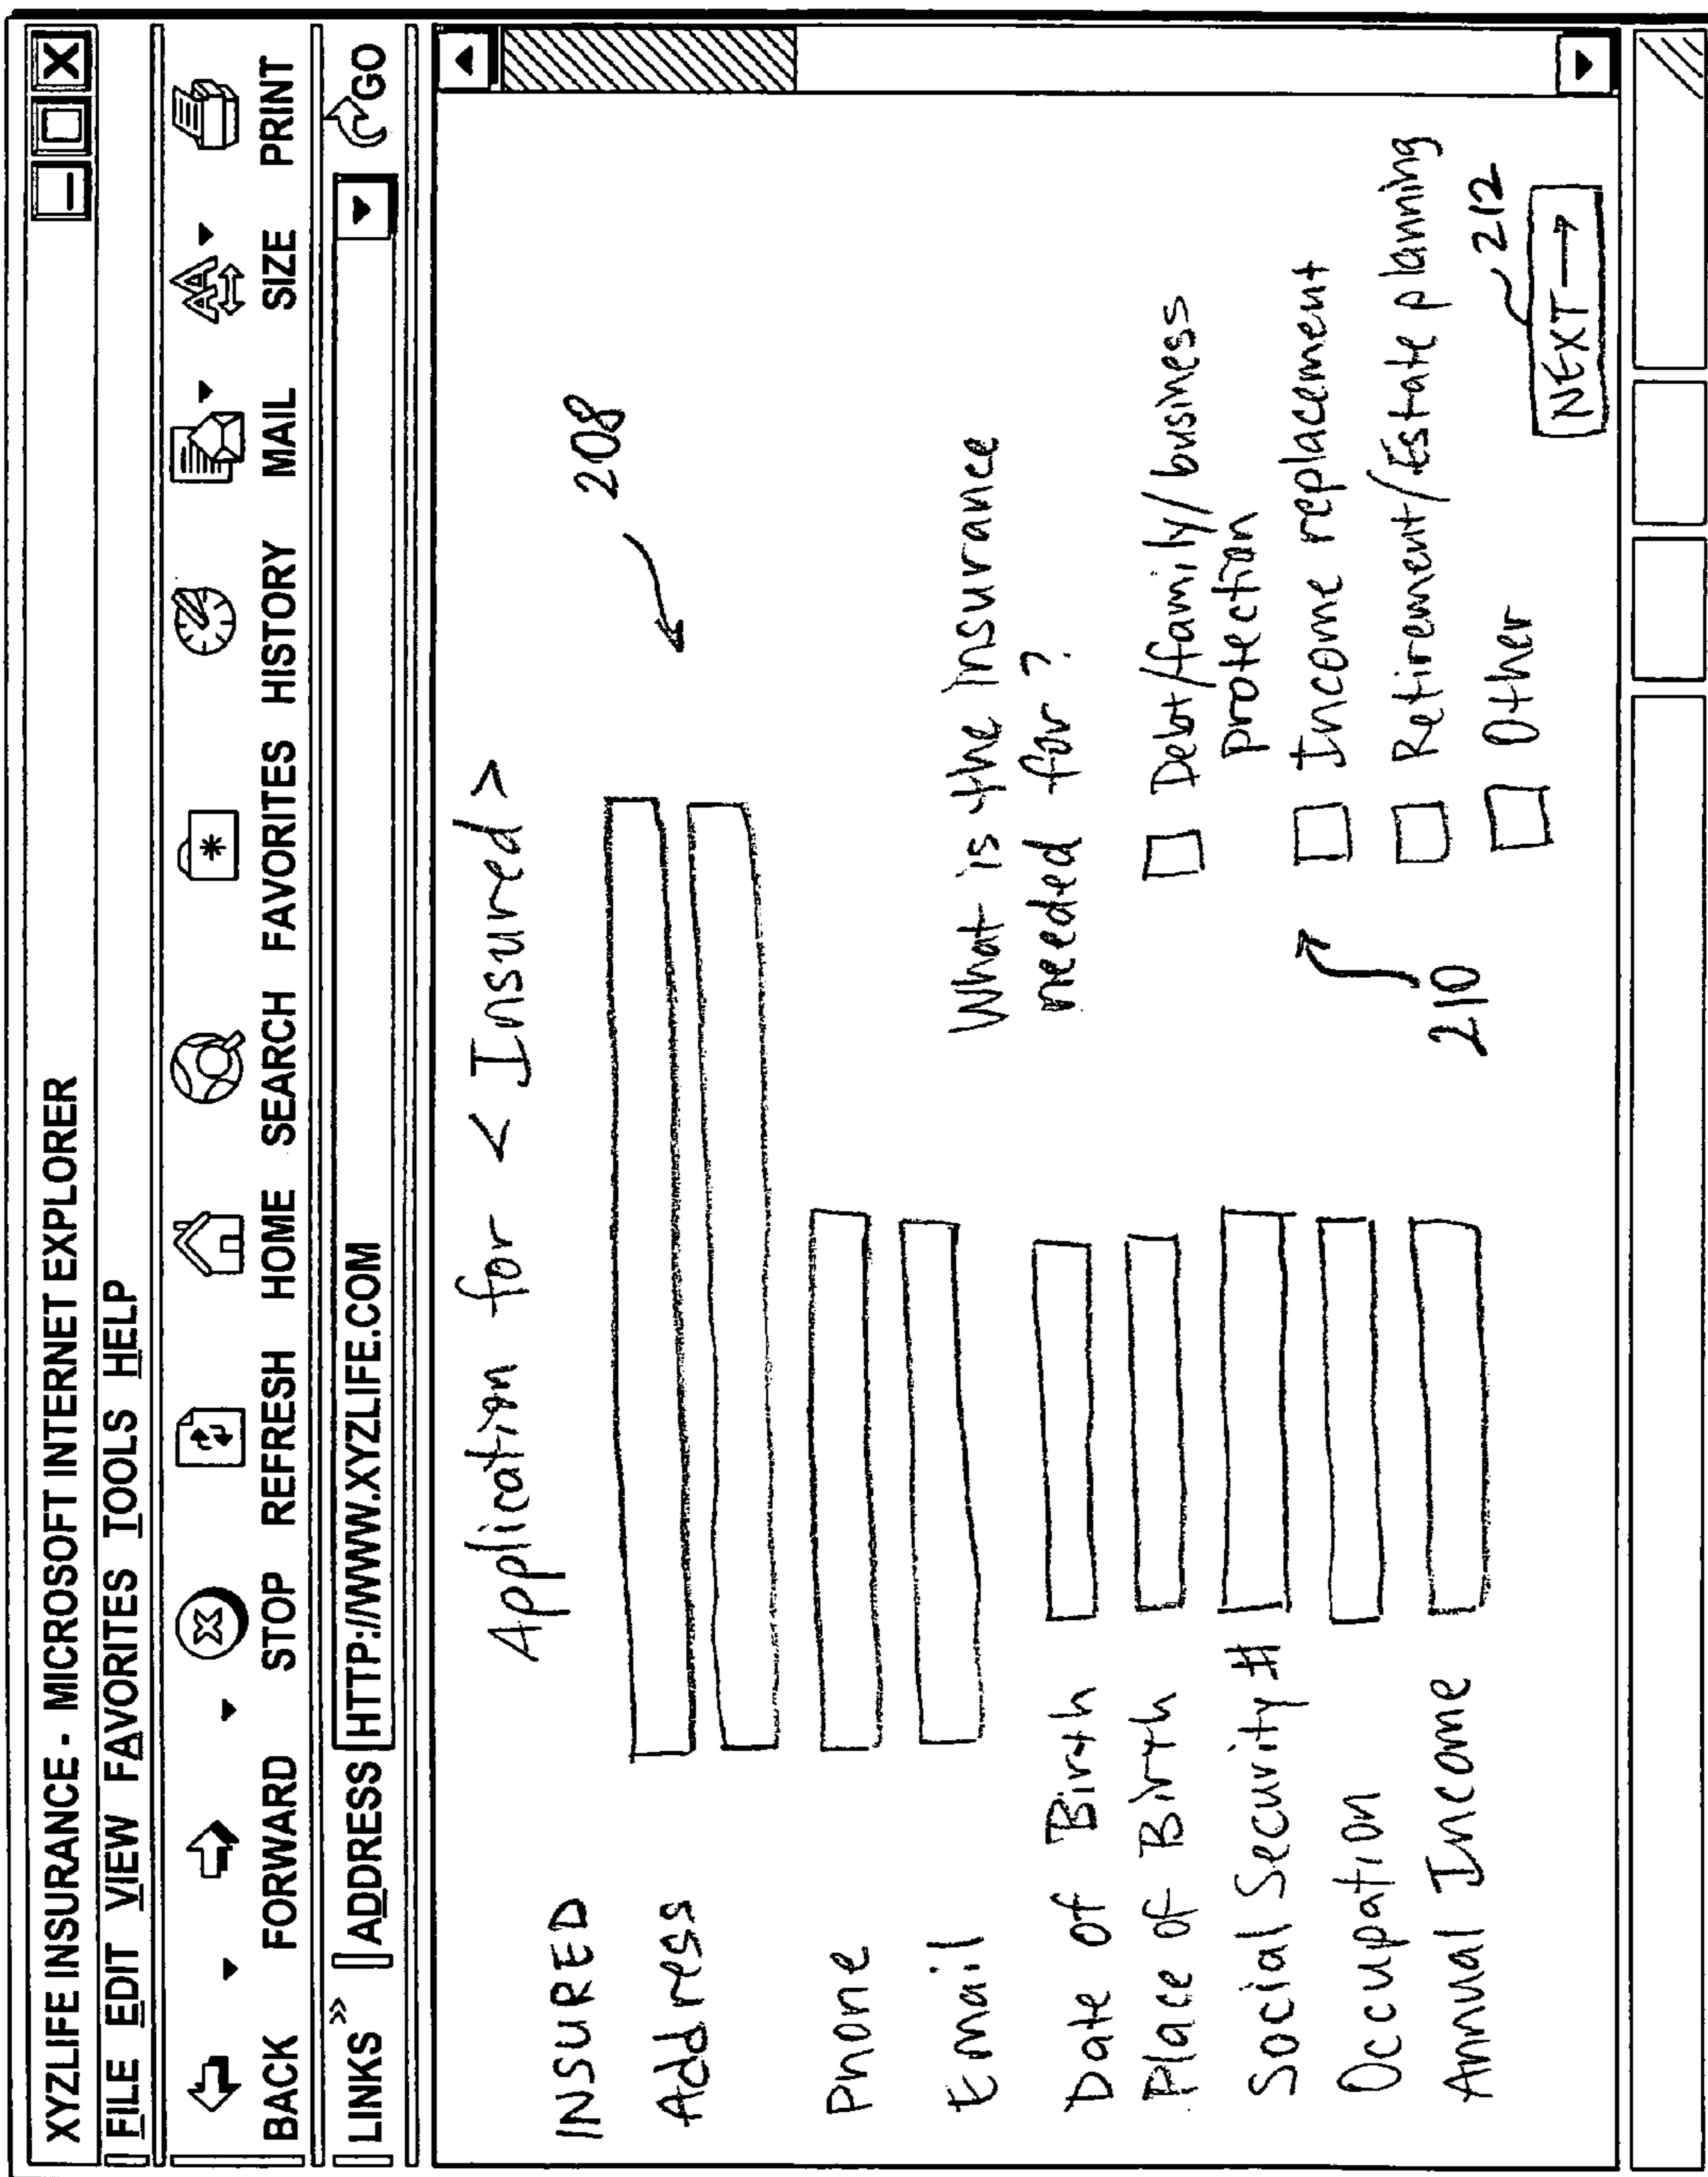 XYZLIFE INSURANCE - MICROSOFT INTERNET EXPLORER
FILE EDIT VIEW FAVORITES TOOLS HELP
BACK FORWARD STOP REFRESH HOME SEARCH FAVORITES HISTORY MAIL SIZE PRINT
LINKS » ADDRESS HTTP://WWW.XYZLIFE.COM GO
Application for < Insured >
INSURED
208
Address
Phone
Email
What is the insurance
needed for?
Date of Birth
Place of Birth
Social Security #
Occupation
Annual Income
Debt/family/business
protection
Income replacement
210
Retirement/Estate planning
Other
212
NEXT →